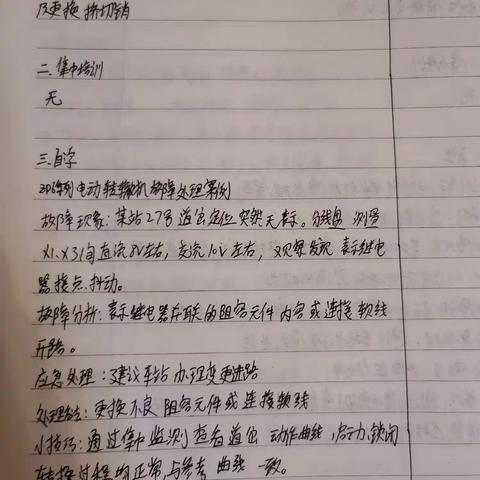 及更换挤切销
二.集中培训
无
三.自学
ZD6系列电动转辙机故障处理案例
故障现象:某站27号道岔定位突然无表示。分线盘测量
X1、X3间直流8V左右,交流10V左右,观察发现表示继电
器接点抖动。
故障分析:表示继电器并联的阻容元件内容或连接软线
开路。
应急处理:建议车站办理变更进路
处理方法:更换不良阻容元件或连接软线
小技巧:通过集中监测查看道岔动作曲线,启动、锁闭
转换过程均正常,与参考曲线一致。